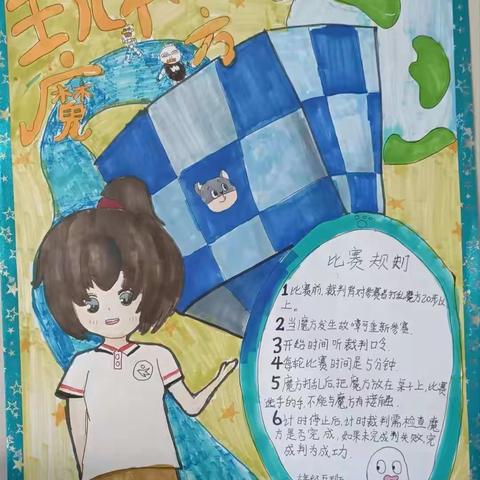 玩转
魔方
比赛规则
1 比赛前,裁判有对参赛者打乱魔方20步以
上。
2 当魔方发生故障可重新参赛.
3 开始时间听裁判口令
4 每轮比赛时间是5分钟.
5 魔方打乱后把魔方放在桌子上,比赛
选手的手不能与魔方有接触.
6 计时停止后,计时裁判需检查魔
方是否完成,如果未完成判失败,完
成判为成功.